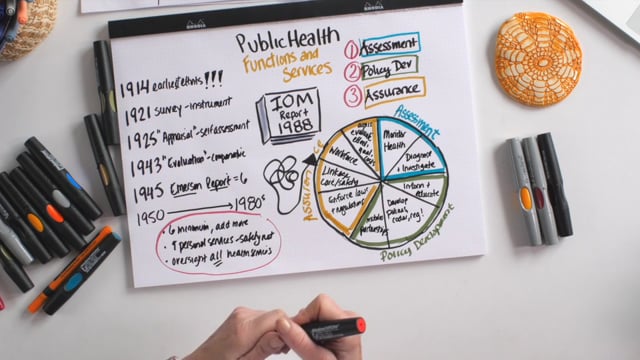 RHODIA
RHODIA
Public Health
Functions and
Services
1914 earliest efforts!!!
1921 survey-instrument
1925 "Appraisal"-selfassessment
1943 "Evaluation"-comparative
1945 Emerson Report=6
1950 → 1980s
• 6 minimum, add more
• personal services-safety net
• oversight all health services
IOM
Report
1988
1 Assessment
2 Policy Dev
3 Assurance
Assessment
Monitor
Health
Diagnose
+ Investigate
Inform +
Educate
Mobilize
partnerships
Develop
Enforce laws
regulations
Workforce
Policy Development